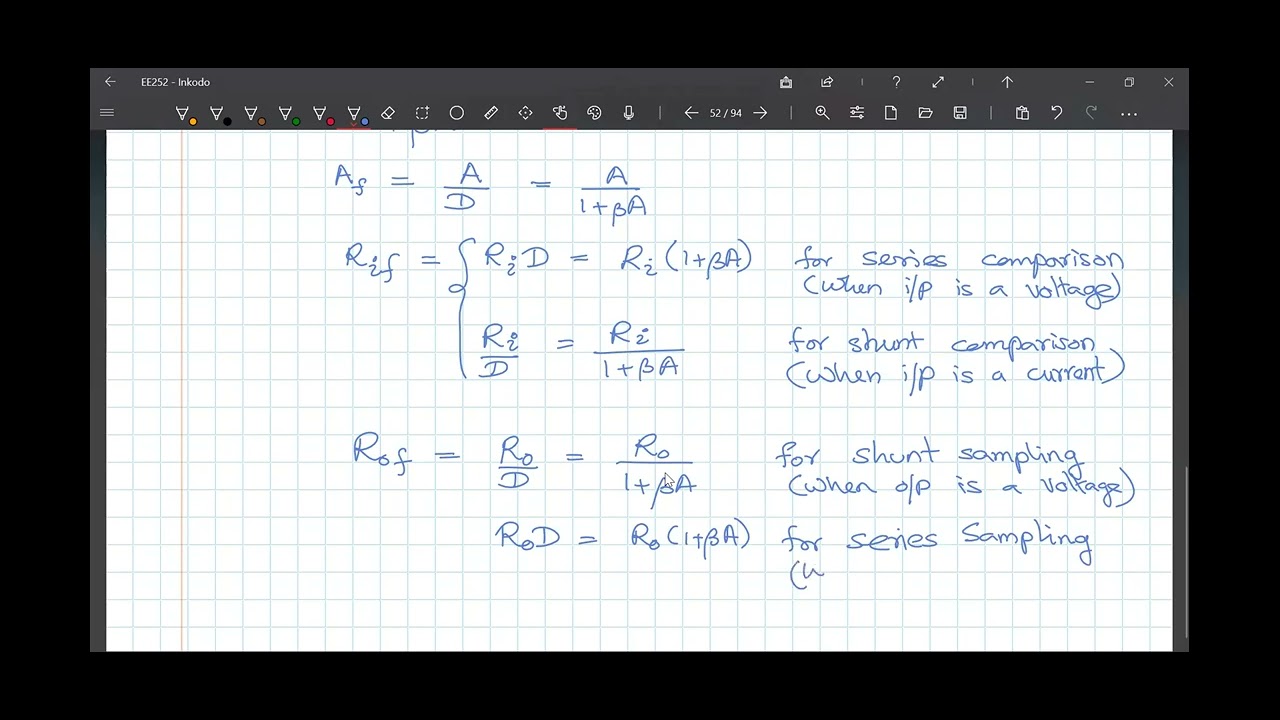 EE252 - Inkodo
52 / 94
A_f = A/D = A/(1+βA)
R_if = { R_i D = R_i (1+βA) for series comparison
(when i/p is a voltage)
R_i/D = R_i/(1+βA) for shunt comparison
(when i/p is a current)
R_of = R_o/D = R_o/(1+βA) for shunt sampling
(when o/p is a voltage)
R_o D = R_o (1+βA) for series Sampling